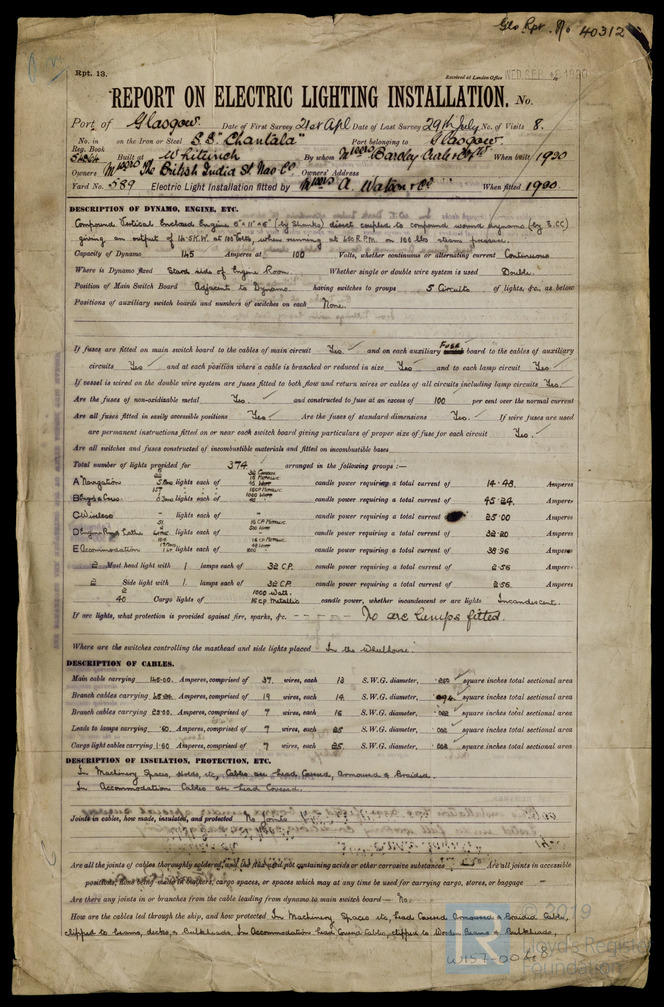 Gls Rpt. No 40312
Rpt. 13.
Received at London Office WED. SEP. 1920
REPORT ON ELECTRIC LIGHTING INSTALLATION. No.
Port of Glasgow Date of First Survey 21st Apl Date of Last Survey 29th July No. of Visits 8.
No. in Reg. Book on the Iron or Steel S.S. "Chantala" Port belonging to Glasgow
Built at Whiteinch By whom Messrs Barclay Curle & Co Ltd When built 1920
Owners Messrs The British India St. Nav Co. Owners' Address
Yard No. 589 Electric Light Installation fitted by Messrs A. Watson & Co When fitted 1920.
DESCRIPTION OF DYNAMO, ENGINE, ETC.
Compound Vertical Enclosed Engine (by Shanks) direct coupled to compound wound dynamo (by E.C.C)
giving an output of 14.5 K.W. at 100 Volts, when running at R.P.M. on 100 lbs steam pressure.
Capacity of Dynamo 145 Amperes at 100 Volts, whether continuous or alternating current Continuous
Where is Dynamo fixed Starb side of Engine Room. Whether single or double wire system is used Double.
Position of Main Switch Board Adjacent to Dynamo having switches to groups 5 Circuits of lights, &c., as below
Positions of auxiliary switch boards and numbers of switches on each None.
If fuses are fitted on main switch board to the cables of main circuit Yes and on each auxiliary Fuse board to the cables of auxiliary
circuits Yes and at each position where a cable is branched or reduced in size Yes and to each lamp circuit Yes
If vessel is wired on the double wire system are fuses fitted to both flow and return wires or cables of all circuits including lamp circuits Yes.
Are the fuses of non-oxidizable metal Yes. and constructed to fuse at an excess of 100 per cent over the normal current
Are all fuses fitted in easily accessible positions Yes Are the fuses of standard dimensions Yes. If wire fuses are used
are permanent instructions fitted on or near each switch board giving particulars of proper size of fuse for each circuit Yes.
Are all switches and fuses constructed of incombustible materials and fitted on incombustible bases
Total number of lights provided for 374 arranged in the following groups :—
A Navigation lights each of candle power requiring a total current of 14.48. Amperes
B lights each of candle power requiring a total current of 45.24. Amperes
C Wireless - lights each of - candle power requiring a total current of 25.00 Amperes
D lights each of candle power requiring a total current of 32.20 Amperes
E Accommodation lights each of candle power requiring a total current of 38.96 Amperes
2 Mast head light with 1 lamps each of 32 C.P. candle power requiring a total current of 2.56 Amperes
2 Side light with 1. lamps each of 32 C.P. candle power requiring a total current of 2.56. Amperes
2 40 Cargo lights of 1000 Watt. 16 C.P. Metallic candle power, whether incandescent or arc lights Incandescent.
If arc lights, what protection is provided against fire, sparks, &c. No arc lamps fitted.
Where are the switches controlling the masthead and side lights placed In the Wheelhouse.
DESCRIPTION OF CABLES.
Main cable carrying 145.00. Amperes, comprised of 37. wires, each 13 S.W.G. diameter, square inches total sectional area
Branch cables carrying 45.24. Amperes, comprised of 19 wires, each 14. S.W.G. diameter, .094 square inches total sectional area
Branch cables carrying 25.00. Amperes, comprised of 7 wires, each 16 S.W.G. diameter, .022 square inches total sectional area
Leads to lamps carrying .60. Amperes, comprised of 7 wires, each 25 S.W.G. diameter, .002 square inches total sectional area
Cargo light cables carrying 1.60 Amperes, comprised of 7 wires, each 25. S.W.G. diameter, .002 square inches total sectional area
DESCRIPTION OF INSULATION, PROTECTION, ETC.
In Machinery Spaces, Holds, etc, Cables are lead Covered, Armoured & Braided.
In Accommodation Cables are lead Covered.
Joints in cables, how made, insulated, and protected No Joints
Are all the joints of cables thoroughly soldered, and the flux used not containing acids or other corrosive substances Are all joints in accessible
positions, none being made in bunkers, cargo spaces, or spaces which may at any time be used for carrying cargo, stores, or baggage —
Are there any joints in or branches from the cable leading from dynamo to main switch board — No.
How are the cables led through the ship, and how protected In Machinery Spaces etc, lead Covered Armoured & Braided Cable,
clipped to beams, decks, & Bulkheads. In Accommodation lead Covered Cables, clipped to Wooden Beams & Bulkheads.
W157-0068
© 2019
Lloyd's Register
Foundation